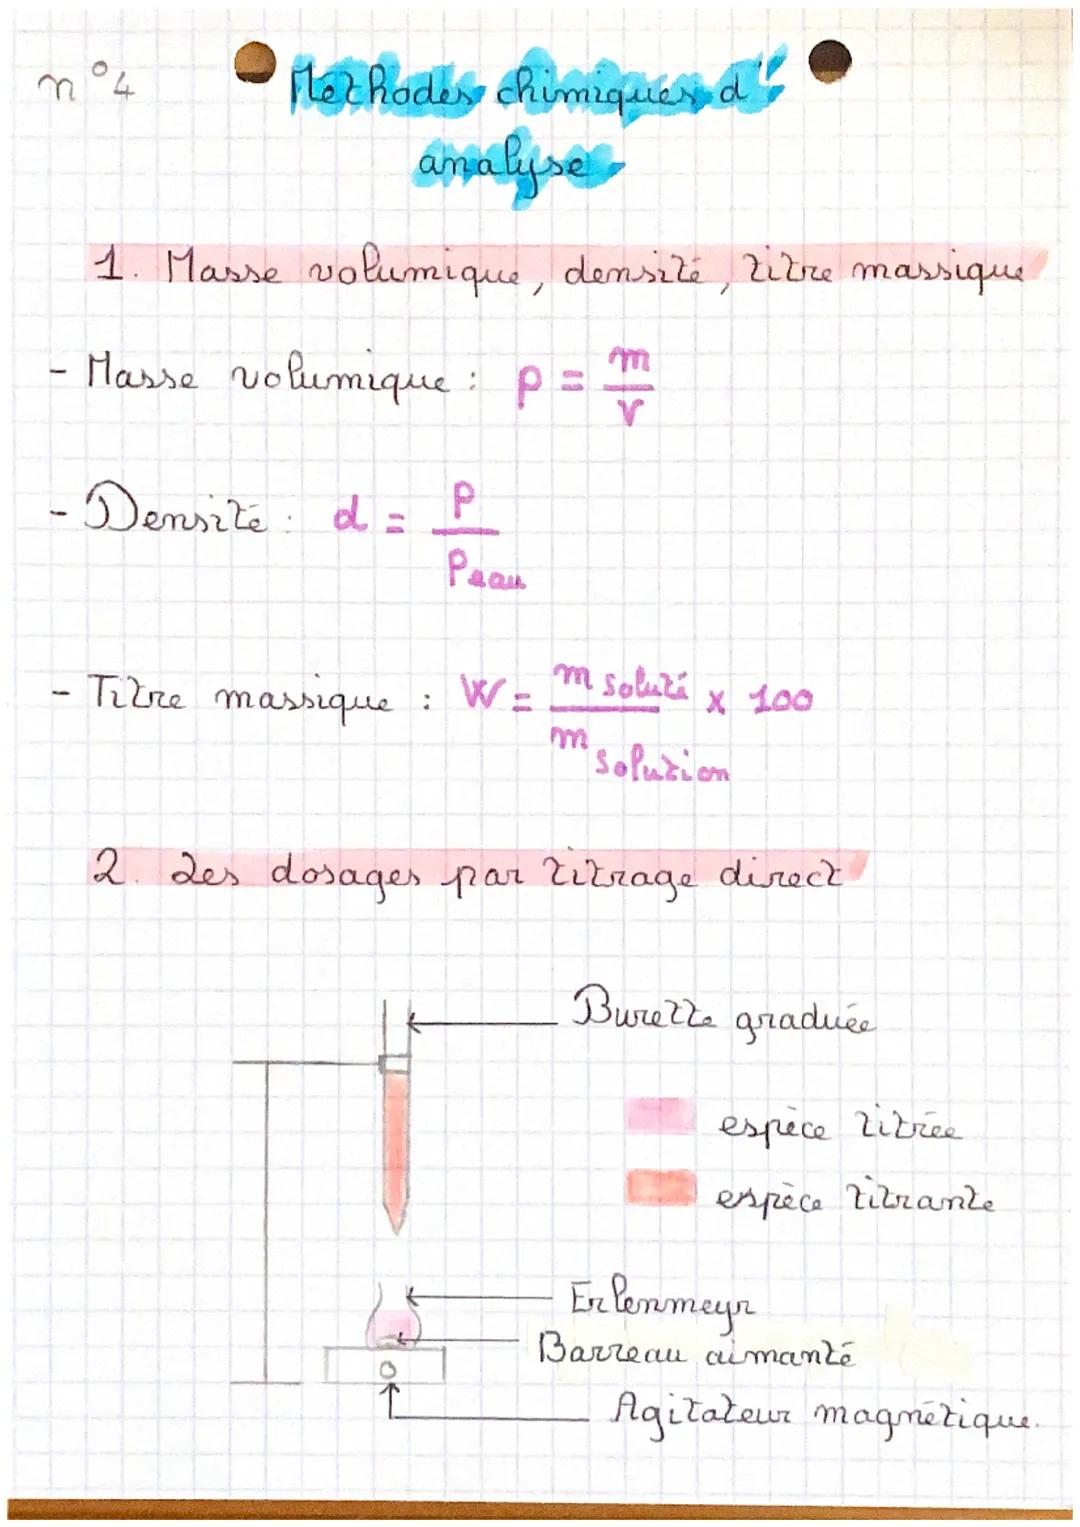 n°4
Methodes chimiques d'
analyse
1. Masse volumique, densité, titre massique
- Masse volumique : ρ = m/v
- Densité : d = ρ/ρeau
- Titre massique : W = m soluté/m solution x 100
2. Les dosages par titrage direct
Burette graduée
espèce titrée
espèce titrante
Erlenmeyr
Barreau aimanté
Agitateur magnétique.